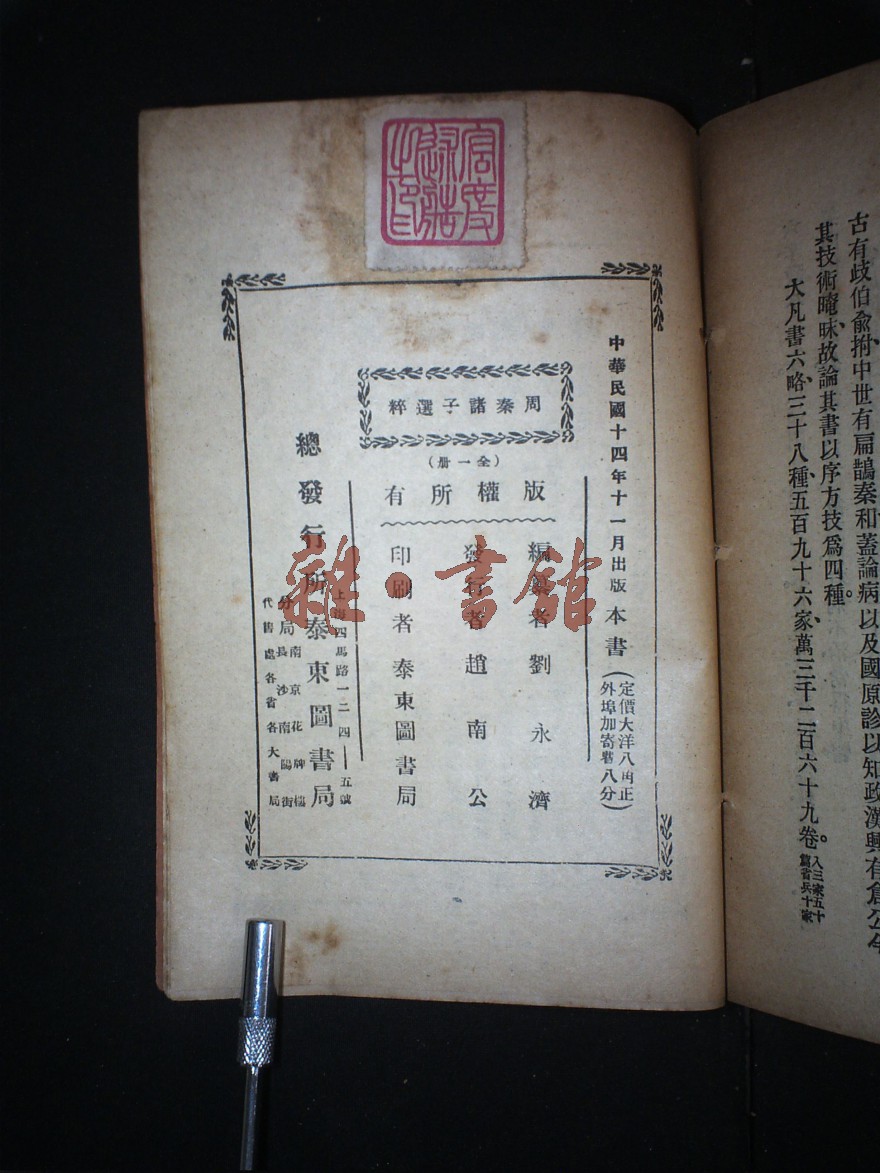 古有歧伯俞拊中世有扁鵲秦和蓋論病以及國原診以知政漢興有倉公今
其技術晻昧故論其書以序方技為四種。
大凡書六略三十八種五百九十六家萬三千二百六十九卷。
入三家五十
篇省兵十家
中華民國十四年十一月出版
本書
定價大洋八角正
外埠加寄費八分
周秦諸子選粹
(全一册)
版權所有
編纂者 劉永濟
發行者 趙南公
印刷者 泰東圖書局
上海四馬路一二四—五號
總發行所 泰東圖書局
分局
南京花牌樓
長沙南陽街
代售處各省各大書局
雜·書館